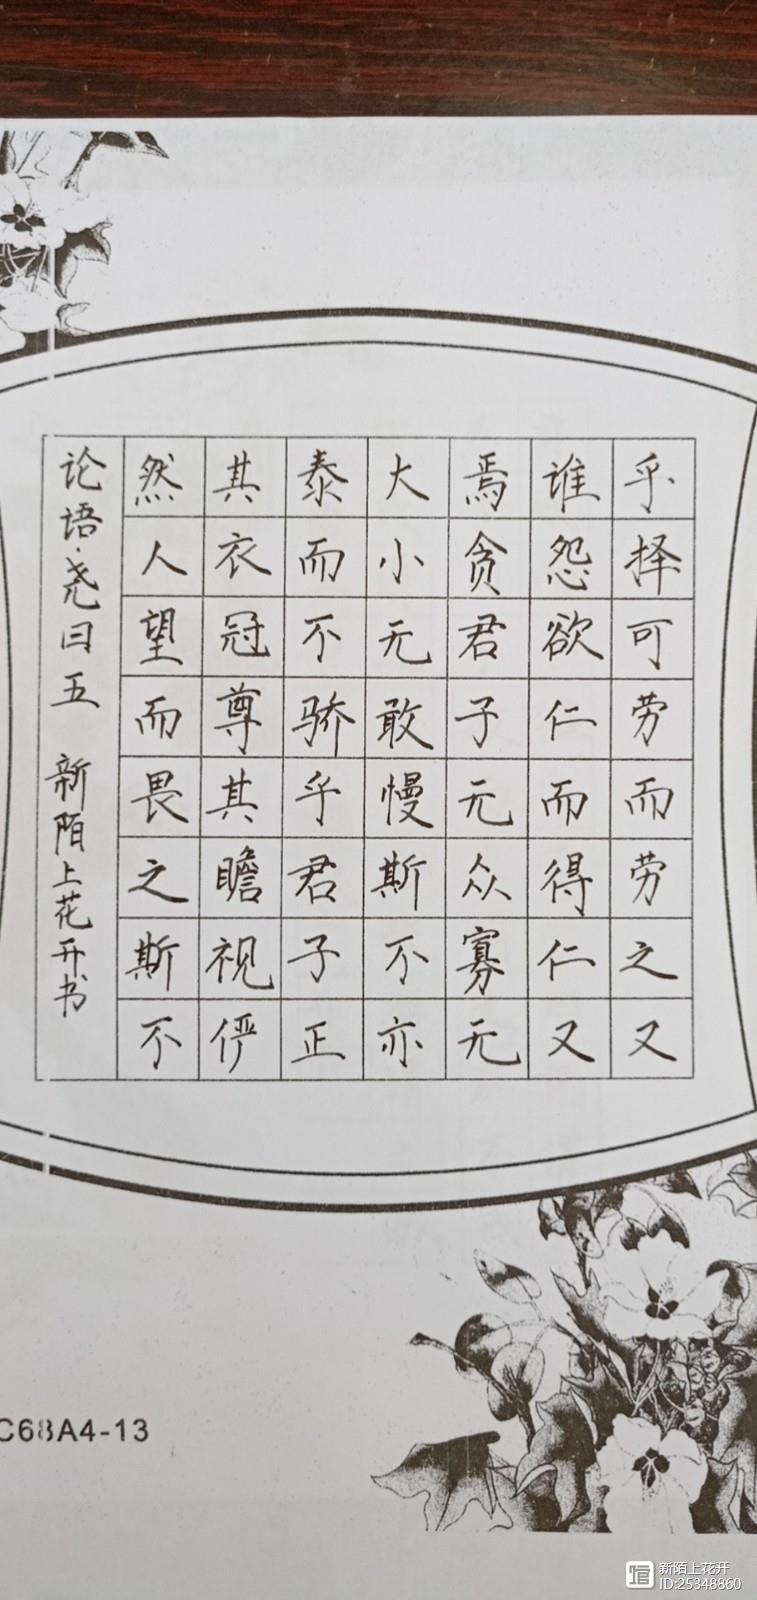 乎择可劳而劳之又
谁怨欲仁而得仁又
焉贪君子无众寡无
大小无敢慢斯不亦
泰而不骄乎君子正
其衣冠尊其瞻视俨
然人望而畏之斯不
论语·尧曰五 新陌上花开书
C68A4-13
新陌上花开
ID:25348860